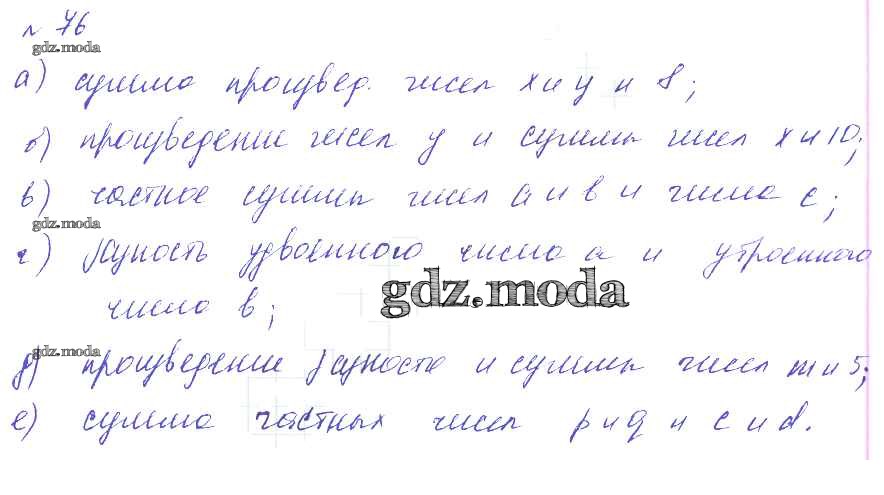 № 76
gdz.moda
а) сумма произвед. чисел х и у и 8;
б) произведение чисел у и суммы чисел х и 10;
в) частное суммы чисел а и в и числа с;
gdz.moda
г) разность удвоенного числа а и утроенного
числа в;
gdz.moda
gdz.moda
д) произведение разности и суммы чисел m и 5;
е) сумма частных чисел p и q и c и d.